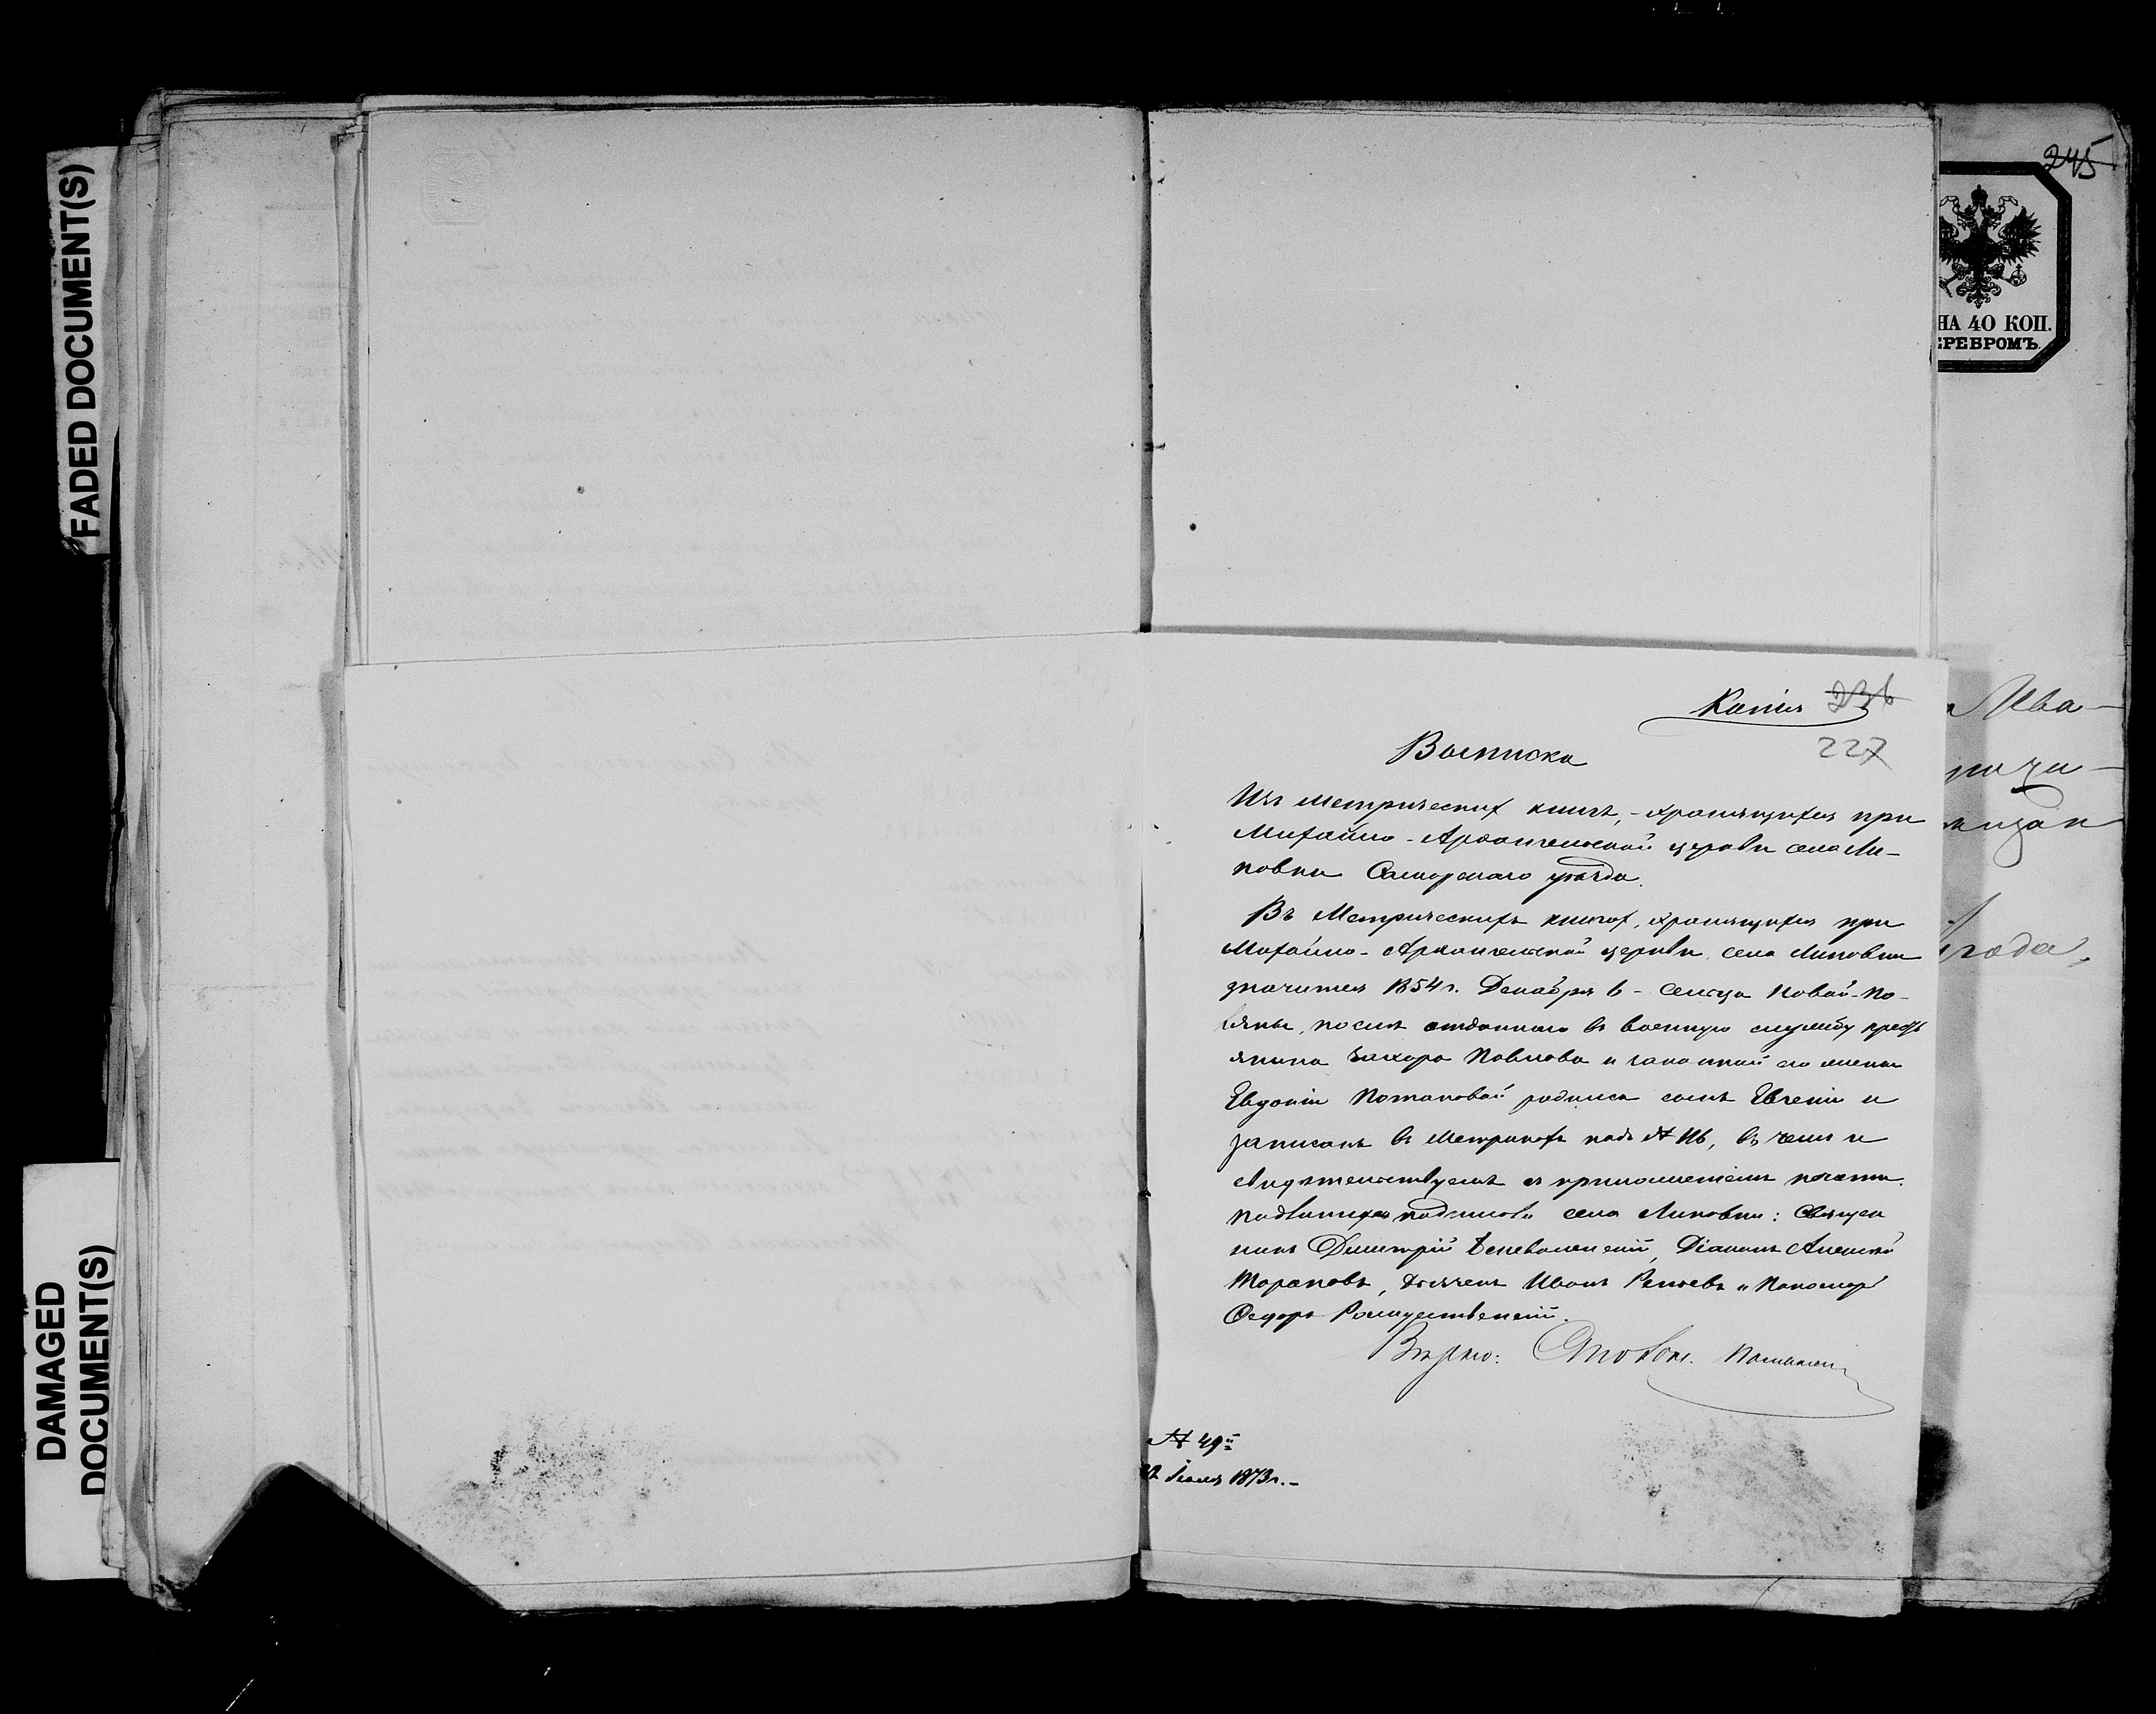 FADED DOCUMENT(S)
DAMAGED
DOCUMENT(S)
245
НА 40 КОП.
ЕРЕБРОМЪ.
Ива-
года,
Копія 236
227
Выписка
Изъ метрическихъ книгъ, хранящихся при
Михайло-Архангельской церкви села Ли-
повки Самарскаго уѣзда.
Въ Метрическихъ книгахъ, хранящихся при
Михайло-Архангельской церкви села Липовки
значится 1854 г. Декабря 6 - сельца Новой-По-
ляны, послѣ отданнаго въ военную службу кресть
янина Захара Павлова и законной его жены
Евдокіи Потаповой родился сынъ Евгеній и
записанъ въ Метрикахъ подъ № 116, въ чемъ и
свидѣтельствуемъ съ приложеніемъ печати.
Подлинную подписали села Липовки: Священ
никъ Димитрій Діаконъ Алексѣй
Дьячекъ Иванъ и Пономарь
Ѳедоръ Рождественскій.
Вѣрно:
№ 49
22 Іюля 1873 г. -